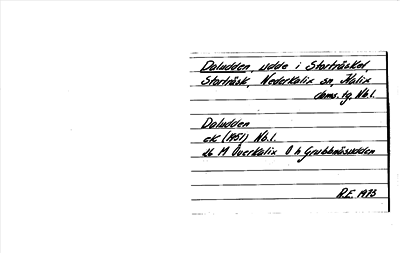 Daludden, udde i Storträsket,
Storträsk, Nederkalix sn, Kalix
doms. tg, Nb.l.
Daludden
ek (1951) Nb.l.
26 M Överkalix Ö h Grubbnäsudden
R.E. 1973